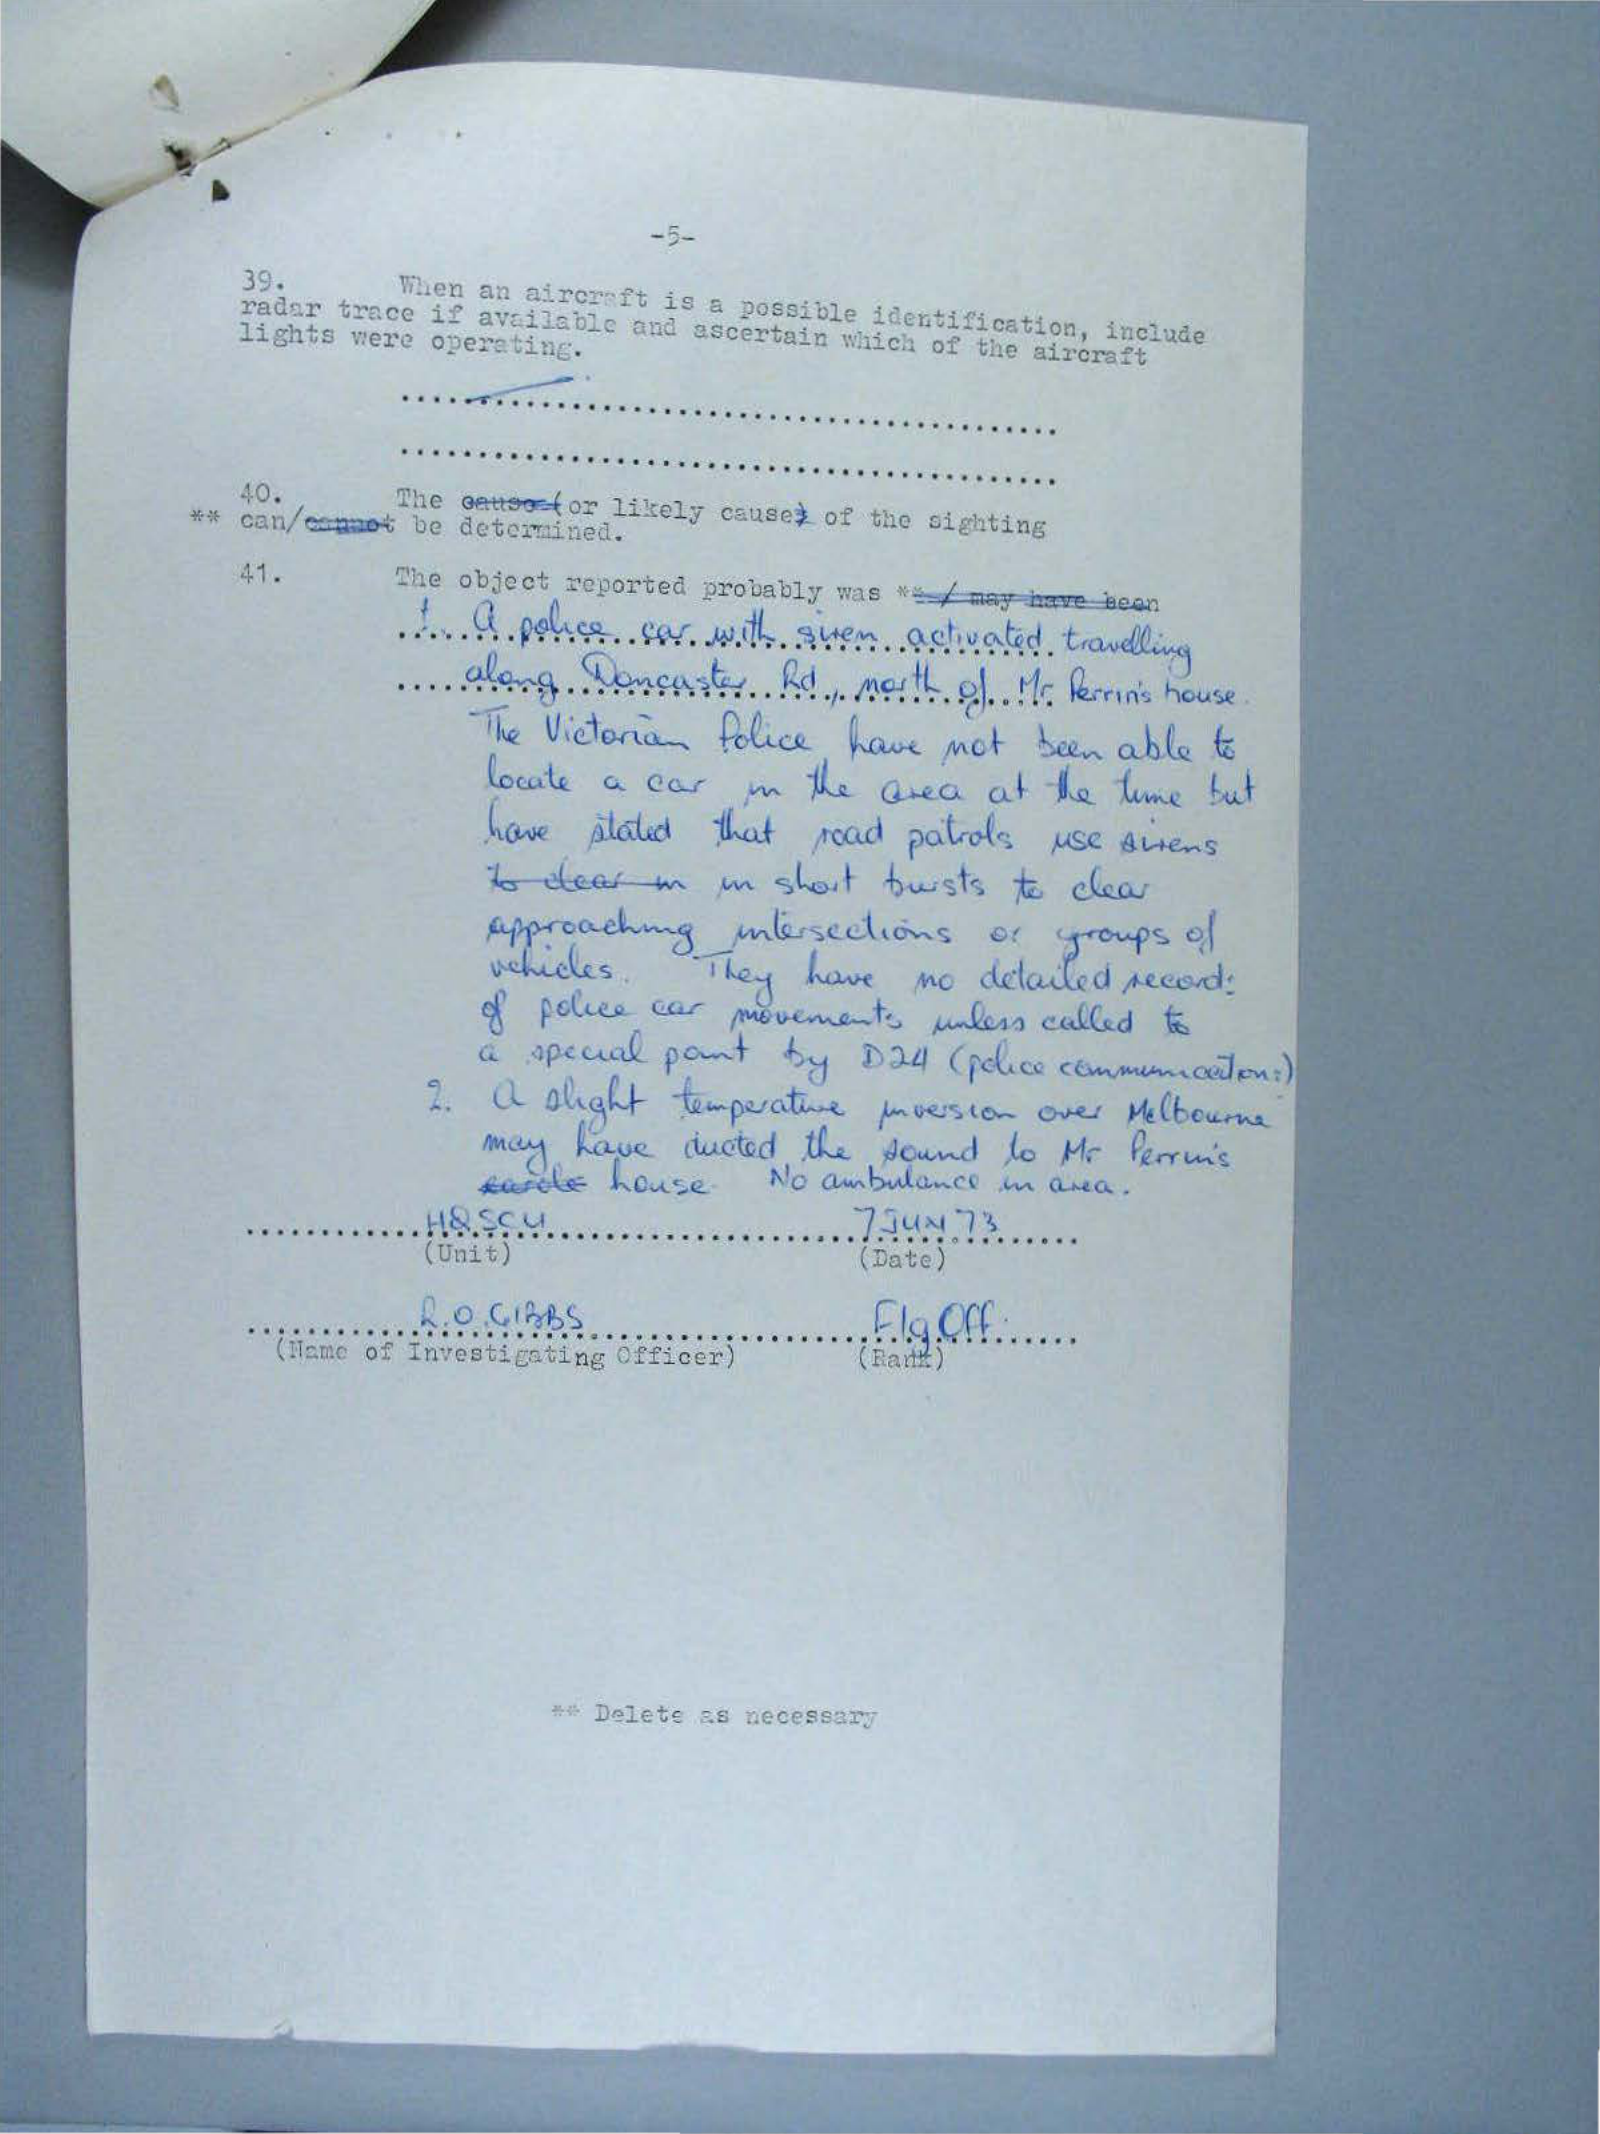 -5-
39. When an aircraft is a possible identification, include
radar trace if available and ascertain which of the aircraft
lights were operating.
40. The cause (or likely cause) of the sighting
** can/cannot be determined.
41. The object reported probably was ** / may have been
1. A police car with siren activated travelling
along Doncaster Rd., north of Mr. Perrin's house.
The Victorian Police have not been able to
locate a car in the area at the time but
have stated that road patrols use sirens
to clear in in short bursts to clear
approaching intersections or groups of
vehicles. They have no detailed records
of police car movements unless called to
a special point by D24 (police communications)
2. A slight temperature inversion over Melbourne
may have ducted the sound to Mr Perrin's
house. No ambulance in area.
HQSCU 7 JUN 73
(Unit) (Date)
R.O. GIBBS Flg Off.
(Name of Investigating Officer) (Rank)
** Delete as necessary